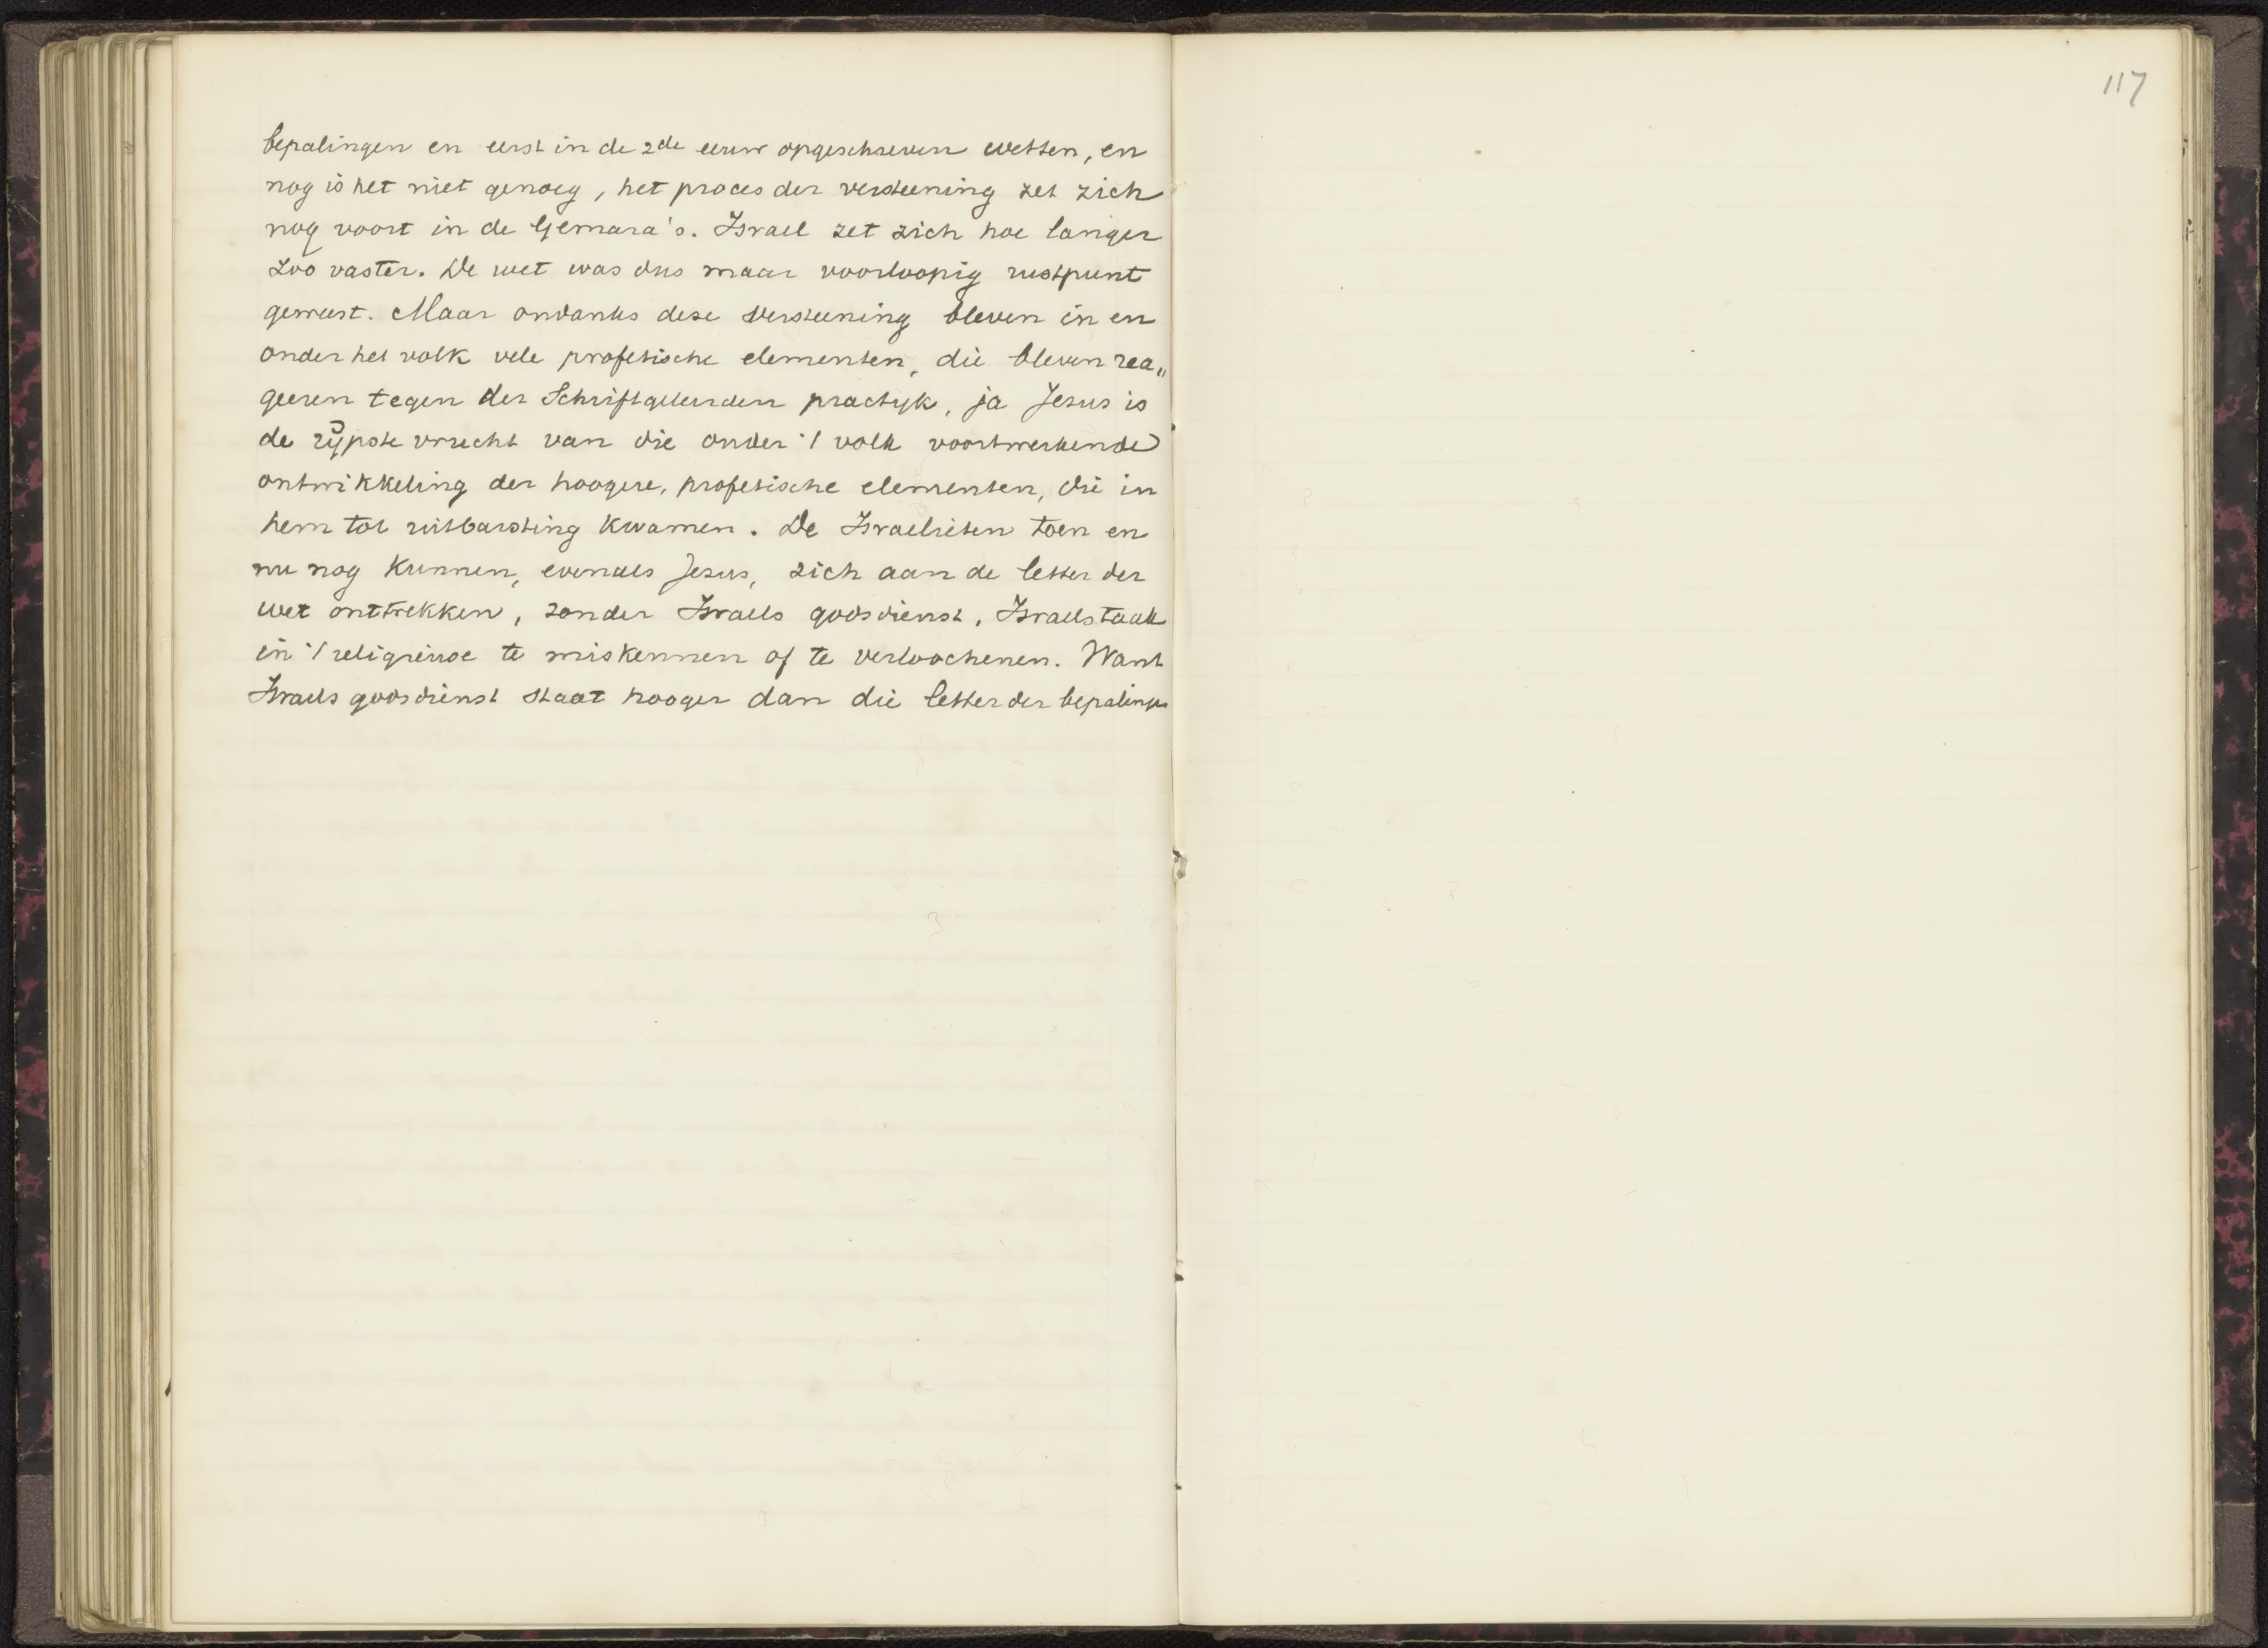 bepalingen en eerst in de 2de eeuw opgeschreven wetten, en
nog is het niet genoeg, het proces der versteening zet zich
nog voort in de Gemara's. Israel zet zich hoe langer
zoo vaster. De wet was dus maar voorloopig rustpunt
geweest. Maar ondanks deze versteening bleven in en
onder het volk vele profetische elementen, die bleven rea„
geeren tegen der Schriftgeleerden practijk, ja Jezus is
de rijpste vrucht van die onder 't volk voortwerkende
ontwikkeling der hoogere, profetische elementen, die in
hem tot uitbarsting kwamen. De Israelieten toen en
nu nog kunnen, evenals Jezus, zich aan de letter der
wet onttrekken, zonder Israels godsdienst, Israels taak
in 't religieuse te miskennen of te verloochenen. Want
Israels godsdienst staat hooger dan die letter der bepalingen
117